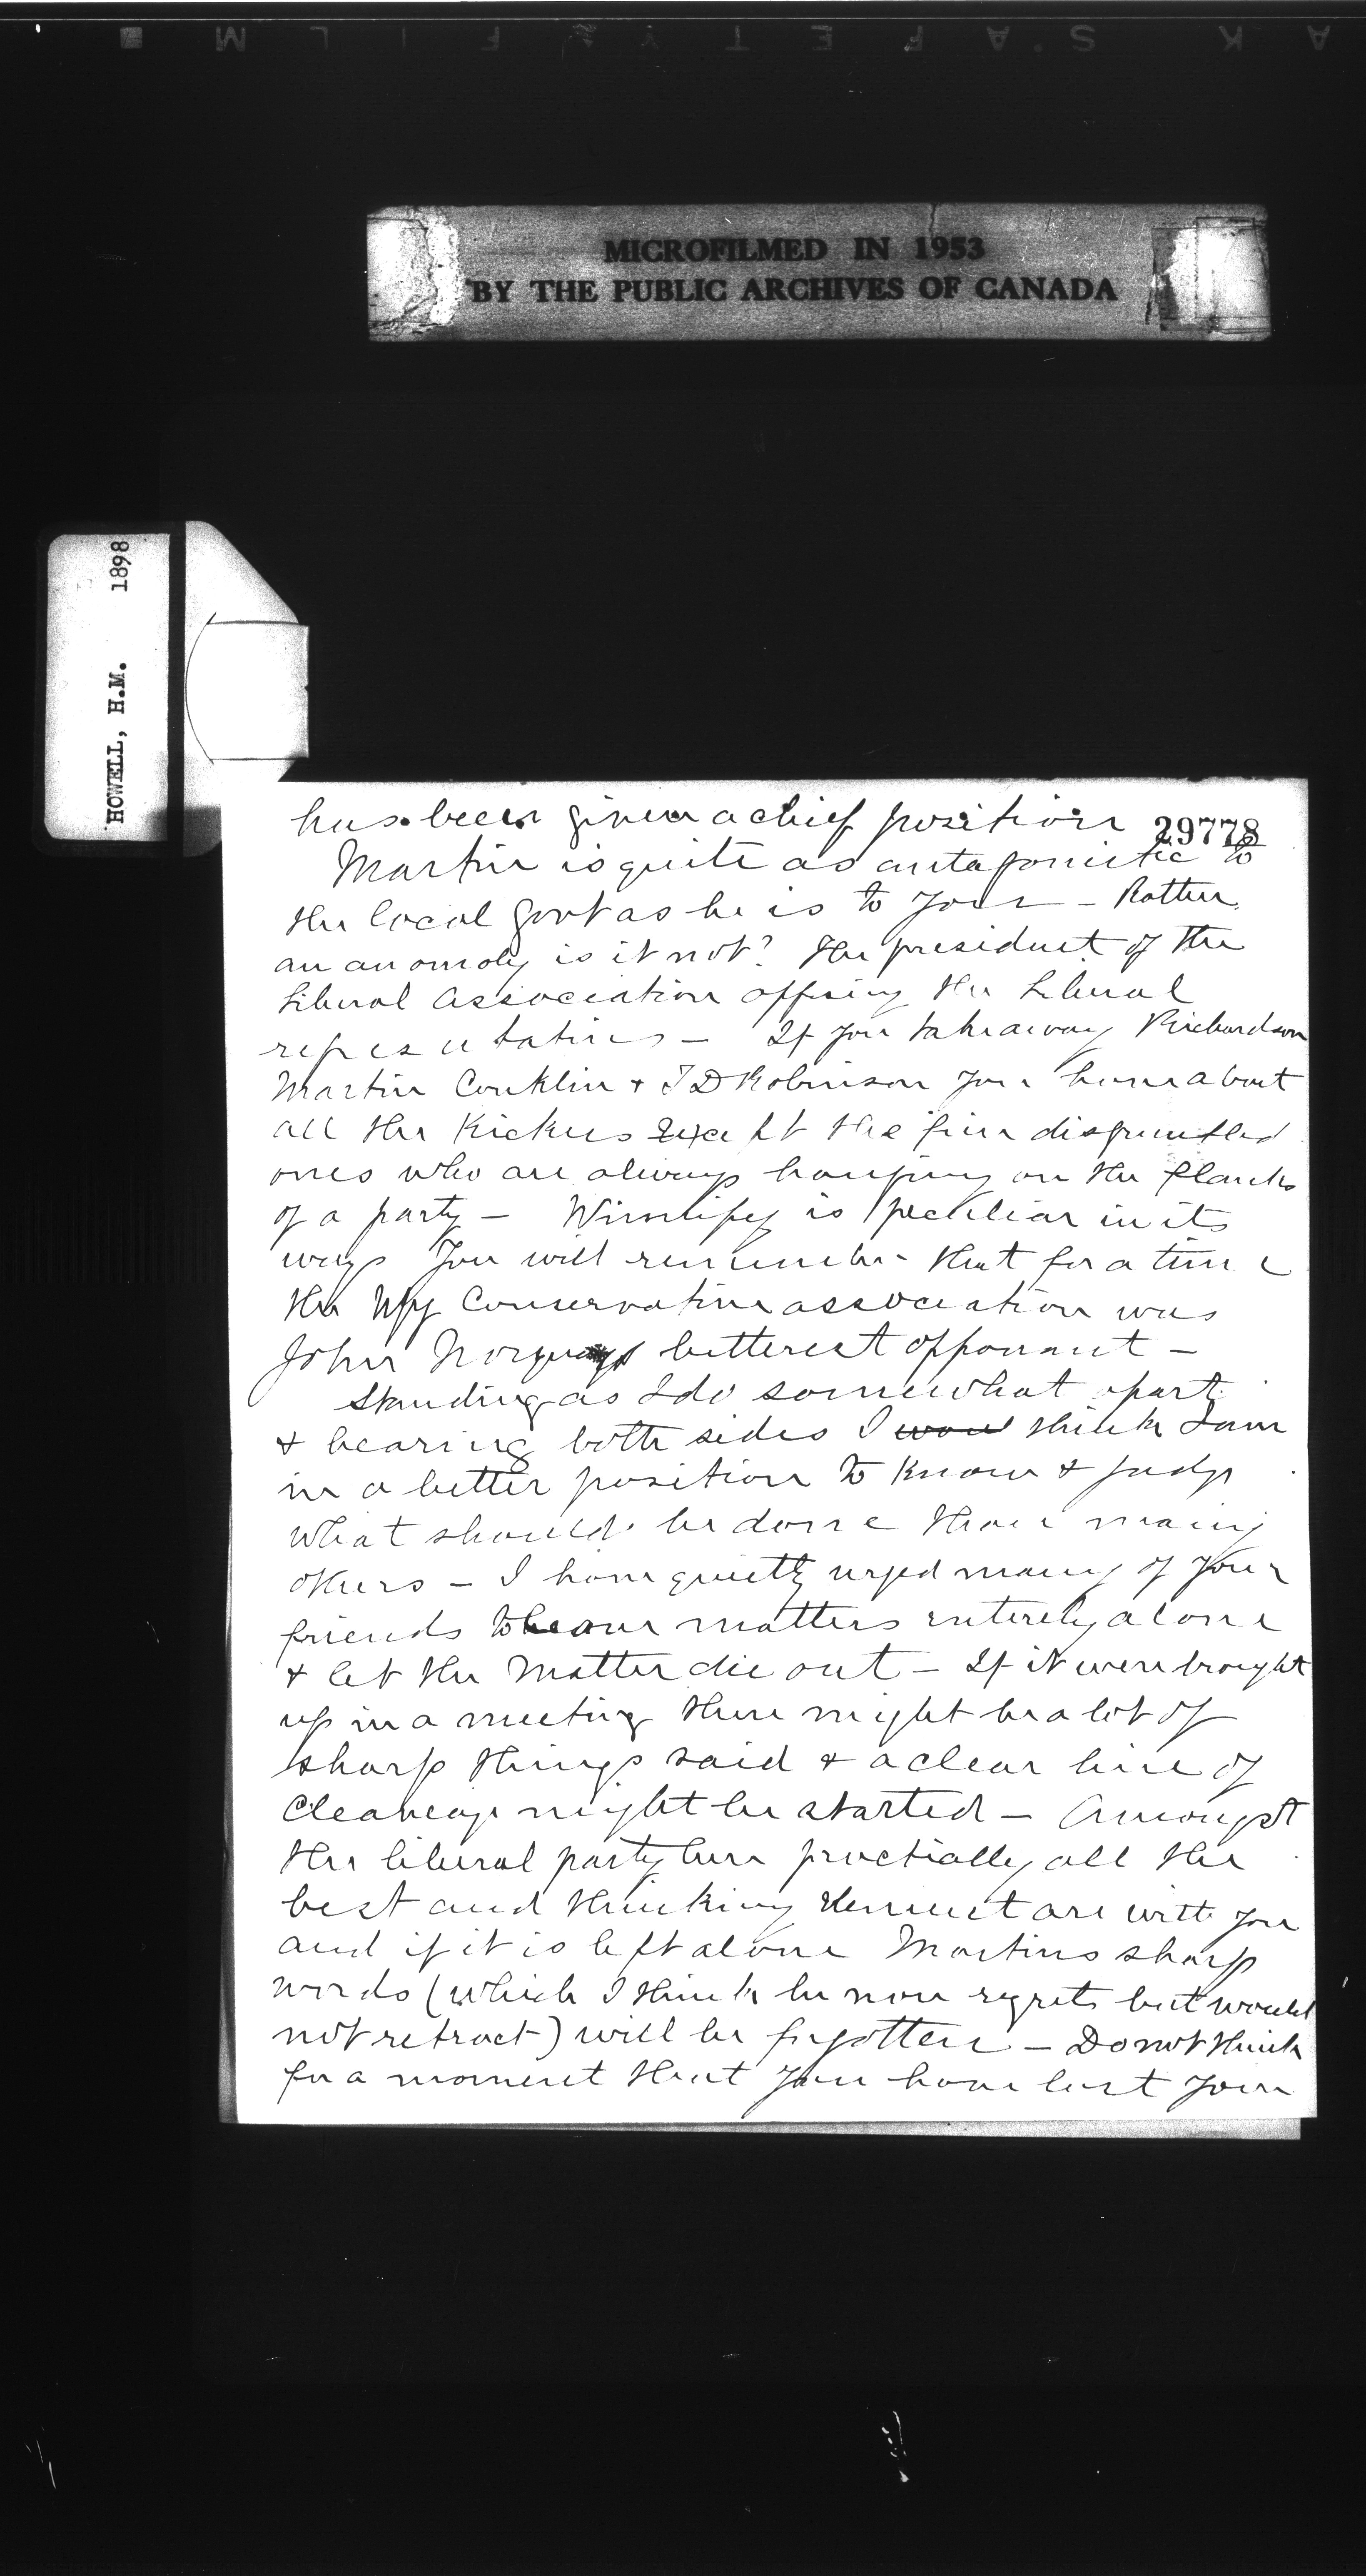 MICROFILMED IN 1953
BY THE PUBLIC ARCHIVES OF CANADA
HOWELL, H.M. 1898
29778
has been given a chief position
Martin is quite as antagonistic to
the local Govt as he is to your – Rather
an anomoly is it not? The president of the
Liberal Association opposing the Liberal
representatives – If you take away Richardson
Martin Conklin & J D Robinson you have about
all the Kickers except the few disgruntled
ones who are always hanging on the flanks
of a party – Winnipeg is peculiar in its
ways You will remember that for a time
the Wpg Conservative association was
John Norquays bitterest opponent –
Standing as I do somewhat apart
& hearing both sides I think I am
in a better position to know & judge
what should be done than many
others – I have quietly urged many of your
friends to leave matters entirely alone
& let the matter die out – If it were brought
up in a meeting there might be a lot of
sharp things said & a clear line of
cleavage might be started – Amongst
the liberal party here practially all the
best and thinking element are with you
and if it is left alone Martins sharp
words (which I think he now regrets but would
not retract) will be forgotten – Do not think
for a moment that you have lost your